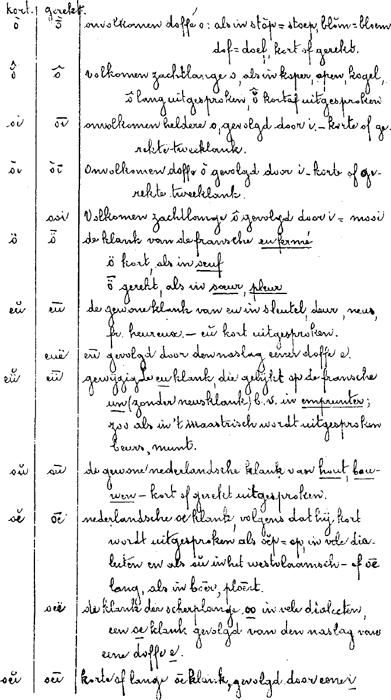 kort. gerekt.
ò ṑ onvolkomen doffe o: als in stòp = stoep, blùm = bloem
dof = doef, kort of gerekt.
ǒ̂ ô volkomen zachtlange o, als in koper, open, kogel,
ô lang uitgesproken, ǒ̂ kort af uitgesproken
oi ōi onvolkomen heldere o, gevolgd door i - korte of ge-
rekte tweeklank.
òi ṑi Onvolkomen doffe ò gevolgd door i - korte of ge-
rekte tweeklank.
ooi Volkomen zachtlange ô gevolgd door i = mooi
ö ȫ de klank van de fransche eu fermé
ö kort, als in seuf
ȫ gerekt, als in sœur, pleur
eŭ eū de gewone klank van eu in sleutel, deur, neus,
fr. heureux. - eŭ kort uitgesproken.
euë eū gevolgd door den naslag eener doffe e.
eŭ eū gewijzigde eu klank, die gelijkt op de fransche
un (zonder neusklank) b. v. in emprunter;
zoo als in 't Maastrisch wordt uitgesproken
beurs, munt.
oŭ oū de gewone nederlandsche klank van hout, bou-
wen - kort of gerekt uitgesproken.
oĕ oē nederlandsche oe klank, volgens dat hij kort
wordt uitgesproken als oĕp = op, in vele dia-
lecten en als ŭ in het westvlaamsch - of oē
lang, als in boēr, ploērt.
oeë de klank der scherplange oo in vele dialecten,
een oe klank gevolgd van den naslag van
eene doffe e.
oĕi oēi korte of lange oe klank, gevolgd door eene i